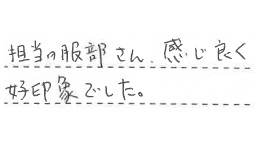 担当の服部さん、感じ良く
好印象でした。